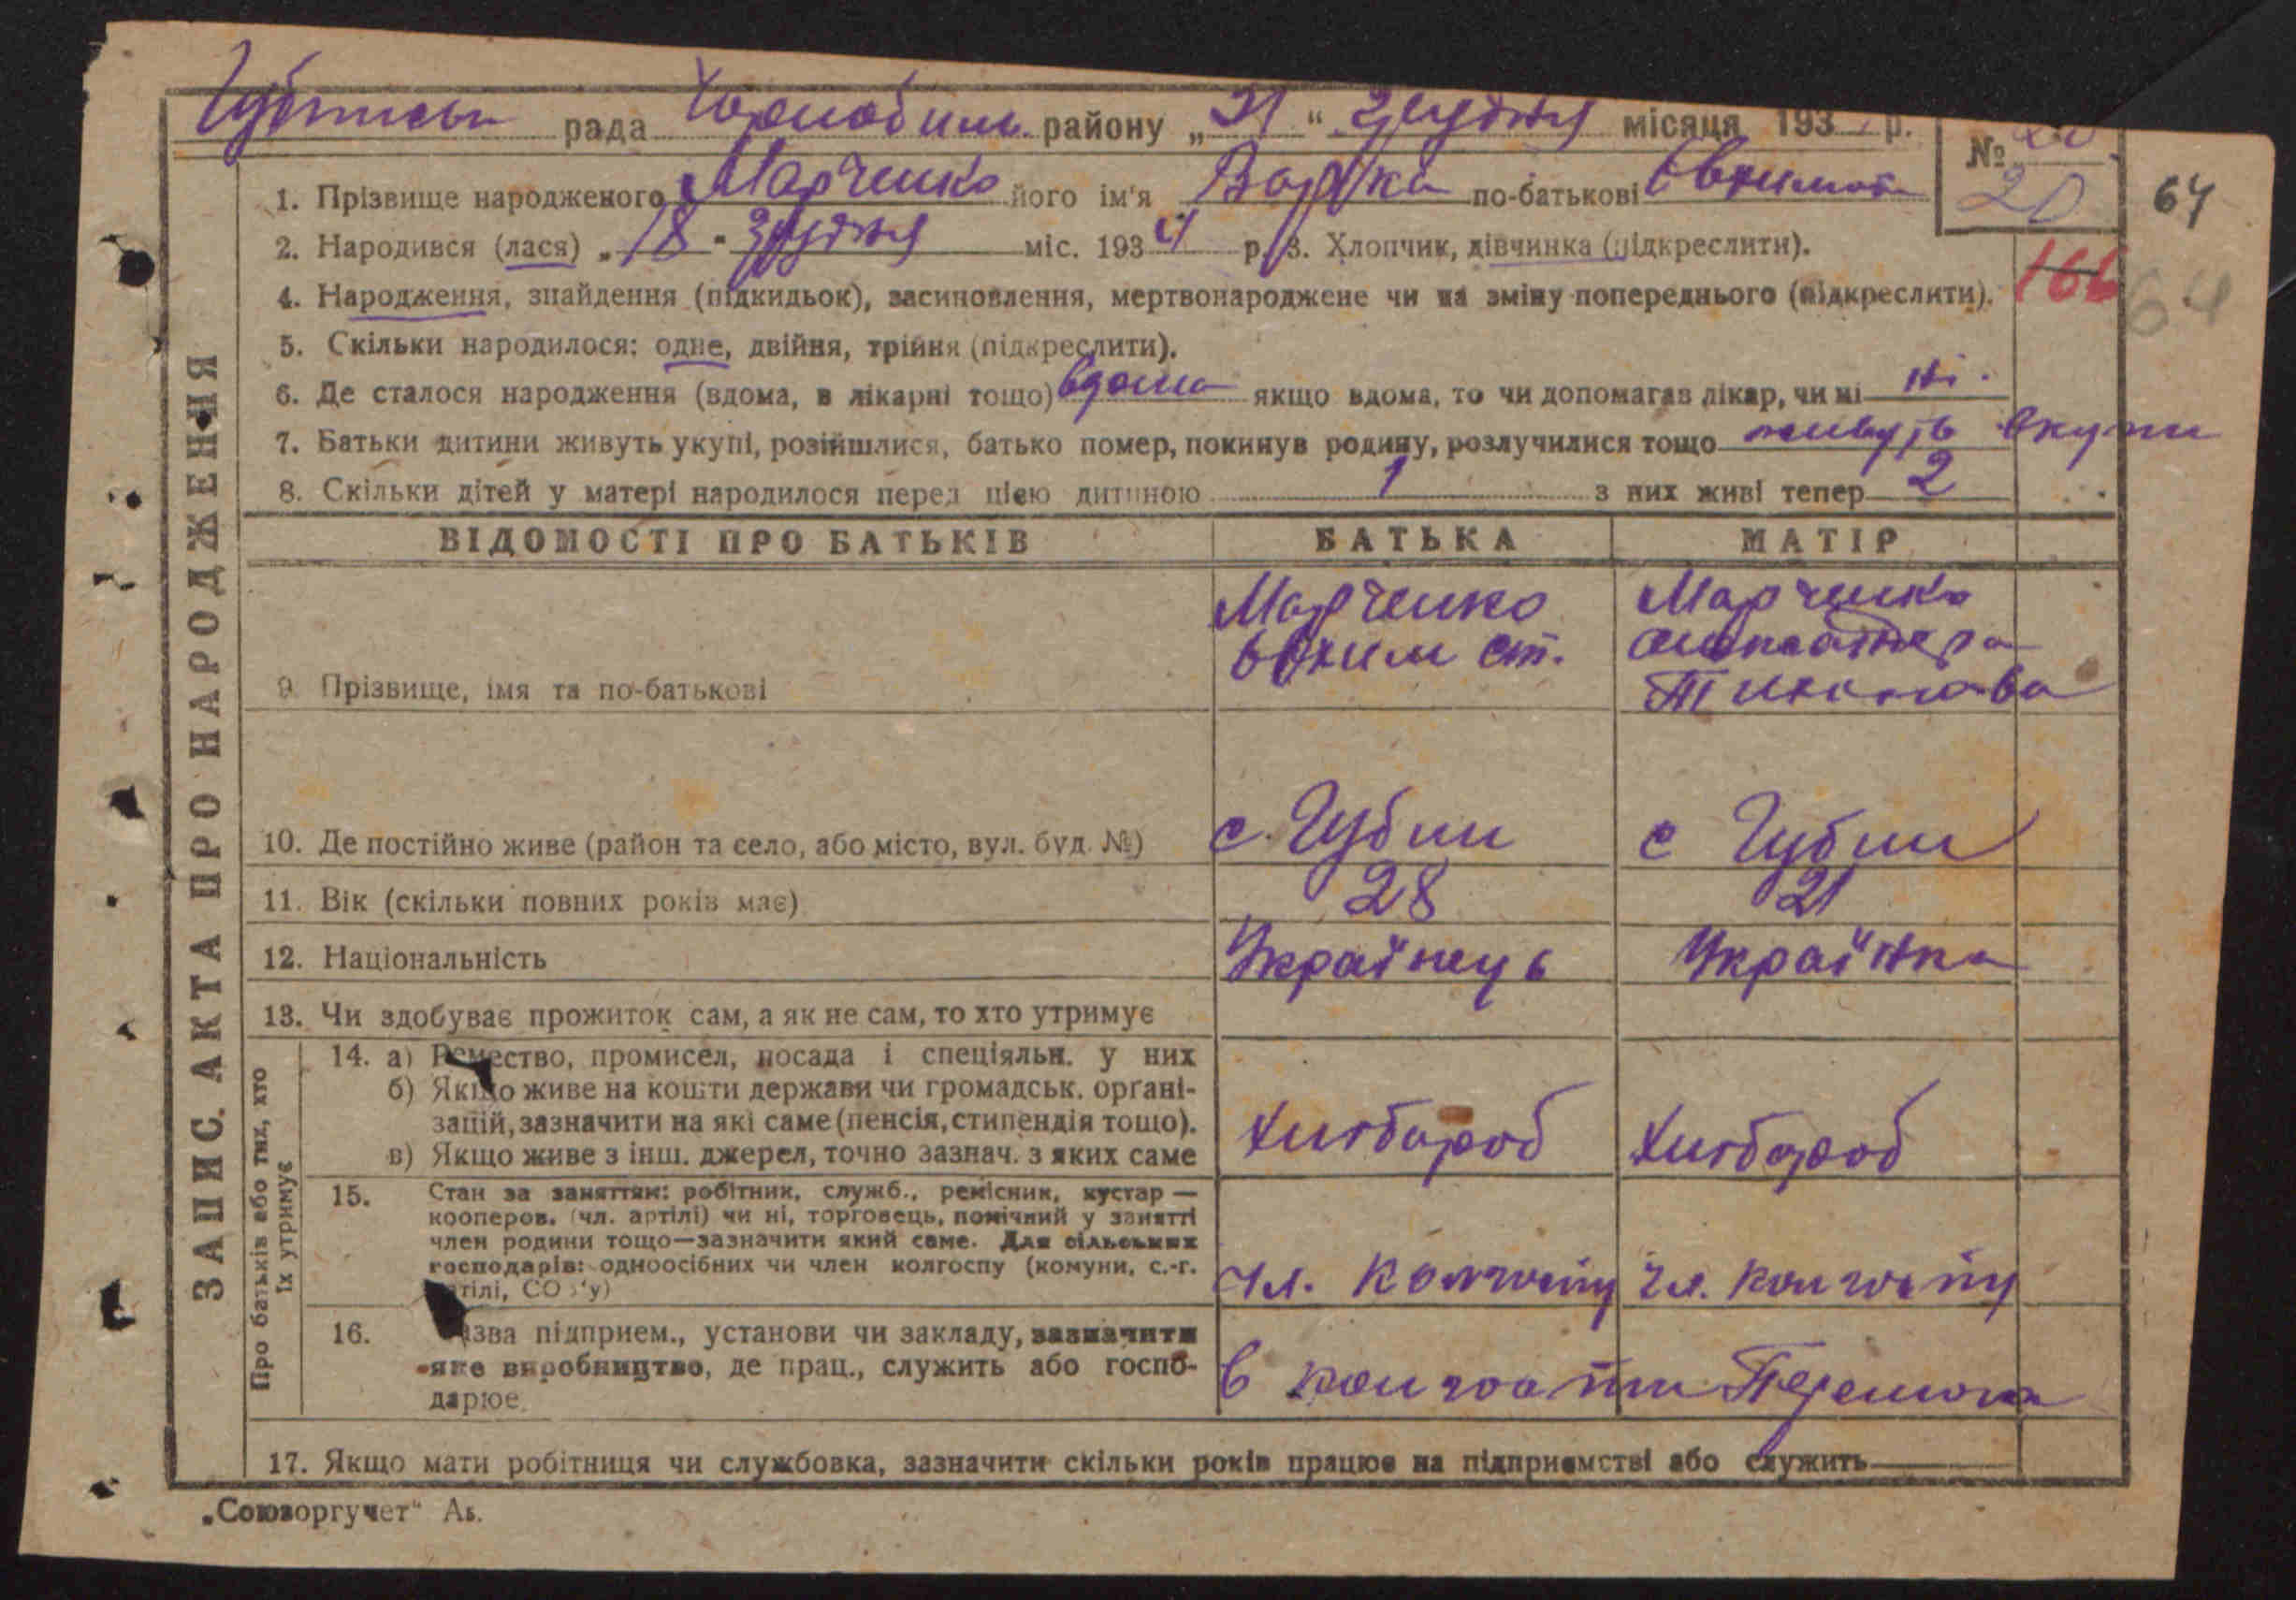 рада Чорнобиль. району „21“ грудня місяця 193 р.
№ 20
20
64
1. Прізвище народженого Марченко його ім'я Варка по-батькові Евхимов
2. Народився (лася) „18" грудня міс. 1934 р. 3. Хлопчик, дівчинка (підкреслити).
166 64
4. Народження, знайдення (підкидьок), засиновлення, мертвонароджене чи на зміну попереднього (підкреслити).
5. Скільки народилося: одне, двійня, трійня (підкреслити).
6. Де сталося народження (вдома, в лікарні тощо) вдома якщо вдома, то чи допомагав лікар, чи ні ні.
7. Батьки дитини живуть укупі, розійшлися, батько помер, покинув родину, розлучилися тощо живуть вкупи
8. Скільки дітей у матері народилося перед цією дитиною 1 з них живі тепер 2
ЗАПИС АКТА ПРО НАРОДЖЕННЯ
ВІДОМОСТІ ПРО БАТЬКІВ БАТЬКА МАТІР
9. Прізвище, імя та по-батькові
Марченко
Евхим Ст.
Марченко
10. Де постійно живе (район та село, або місто, вул. буд. №) с. Губин с Губин
11. Вік (скільки повних років має) 28 21
12. Національність Українець Українка
13. Чи здобуває прожиток сам, а як не сам, то хто утримує
Про батьків або тих, хто
їх утримує
14. а) Ремество, промисел, посада і спеціяльн. у них
б) Якщо живе на кошти держави чи громадськ. орґані-
зацій, зазначити на які саме (пенсія, стипендія тощо).
в) Якщо живе з інш. джерел, точно зазнач. з яких саме
Хлібороб Хлібороб
15. Стан за заняттям: робітник, служб., ремісник, кустар —
кооперов. (чл. артілі) чи ні, торговець, помічний у занятті
член родини тощо—зазначити який саме. Для сільських
господарів: одноосібних чи член колгоспу (комуни, с.-г.
тілі, СО у)
чл. колгоспу чл. колгоспу
16. азва підприєм., установи чи закладу, зазначити
яке виробництво, де прац., служить або госпо-
дарює.
в колгоспи Перемога
17. Якщо мати робітниця чи службовка, зазначити скільки років працює на підприємстві або служить
„Союзоргучет“ Ав.